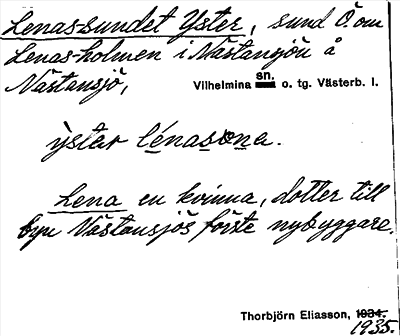 Lenas-sundet Yster, sund Ö. om
Lenas-holmen i Nästansjön å
Nästansjö, Vilhelmina sn. o. tg. Västerb. l.
ỳstər lénasòna.
Lena en kvinna, dotter till
byn Nästansjös förste nybyggare.
Thorbjörn Eliasson, 1934.
1935.